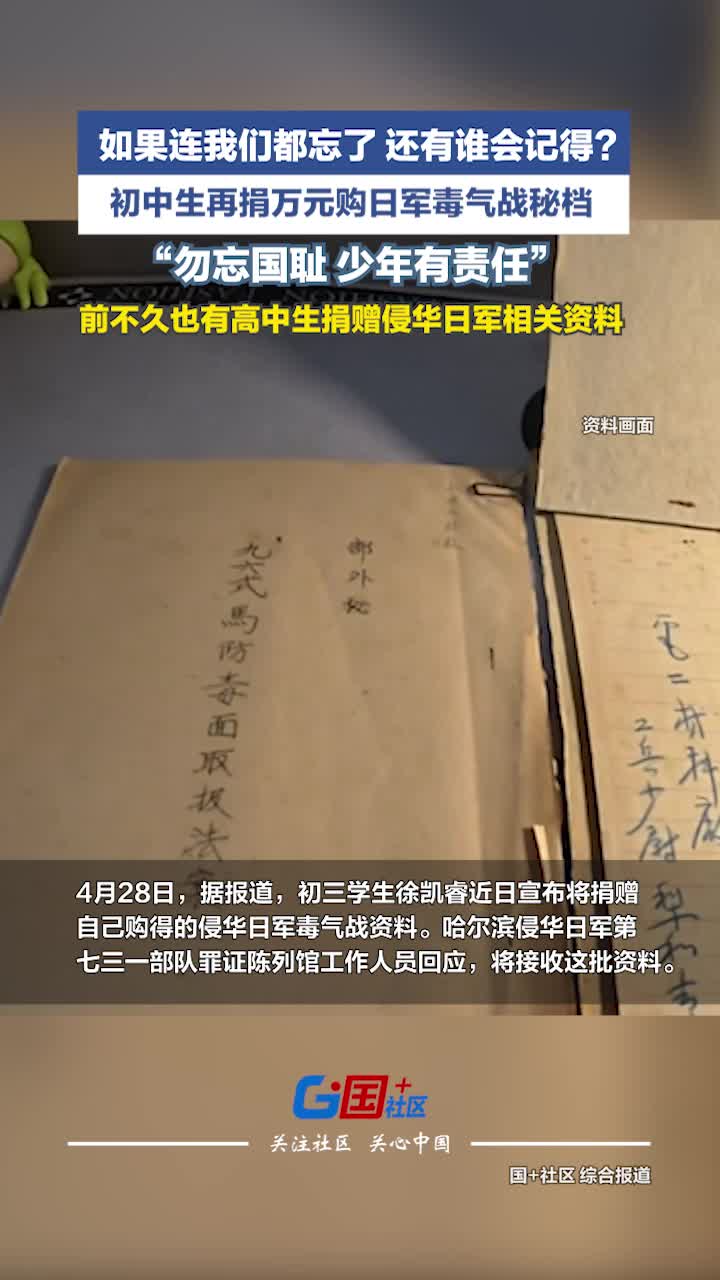 如果连我们都忘了 还有谁会记得？
初中生再捐万元购日军毒气战秘档
“勿忘国耻 少年有责任”
前不久也有高中生捐赠侵华日军相关资料
资料画面
部外秘
九六式馬防毒面取扱法
4月28日，据报道，初三学生徐凯睿近日宣布将捐赠
自己购得的侵华日军毒气战资料。哈尔滨侵华日军第
七三一部队罪证陈列馆工作人员回应，将接收这批资料。
G国+社区
关注社区 关心中国
国+社区 综合报道